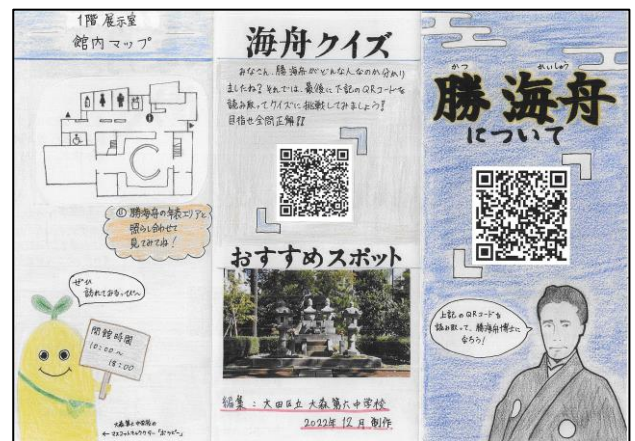 1階 展示室
館内マップ
⑪ 勝海舟の年表エリアと
照らし合わせて
見てみてね!
ぜひ
訪れてみるっぴ〜
開館時間
10:00〜
18:00
大森第六中学校の
←マスコットキャラクター「ポラピー」
海舟クイズ
みなさん、勝海舟がどんな人なのか分かり
ましたね?それでは、最後に下記のQRコードを
読み取ってクイズに挑戦してみましょう!
目指せ全問正解!!
おすすめスポット
編集:大田区立 大森第六中学校
2022年 12月 制作
かつ かいしゅう
勝海舟
について
上記のQRコードを
読み取って、勝海舟博士に
なろう!